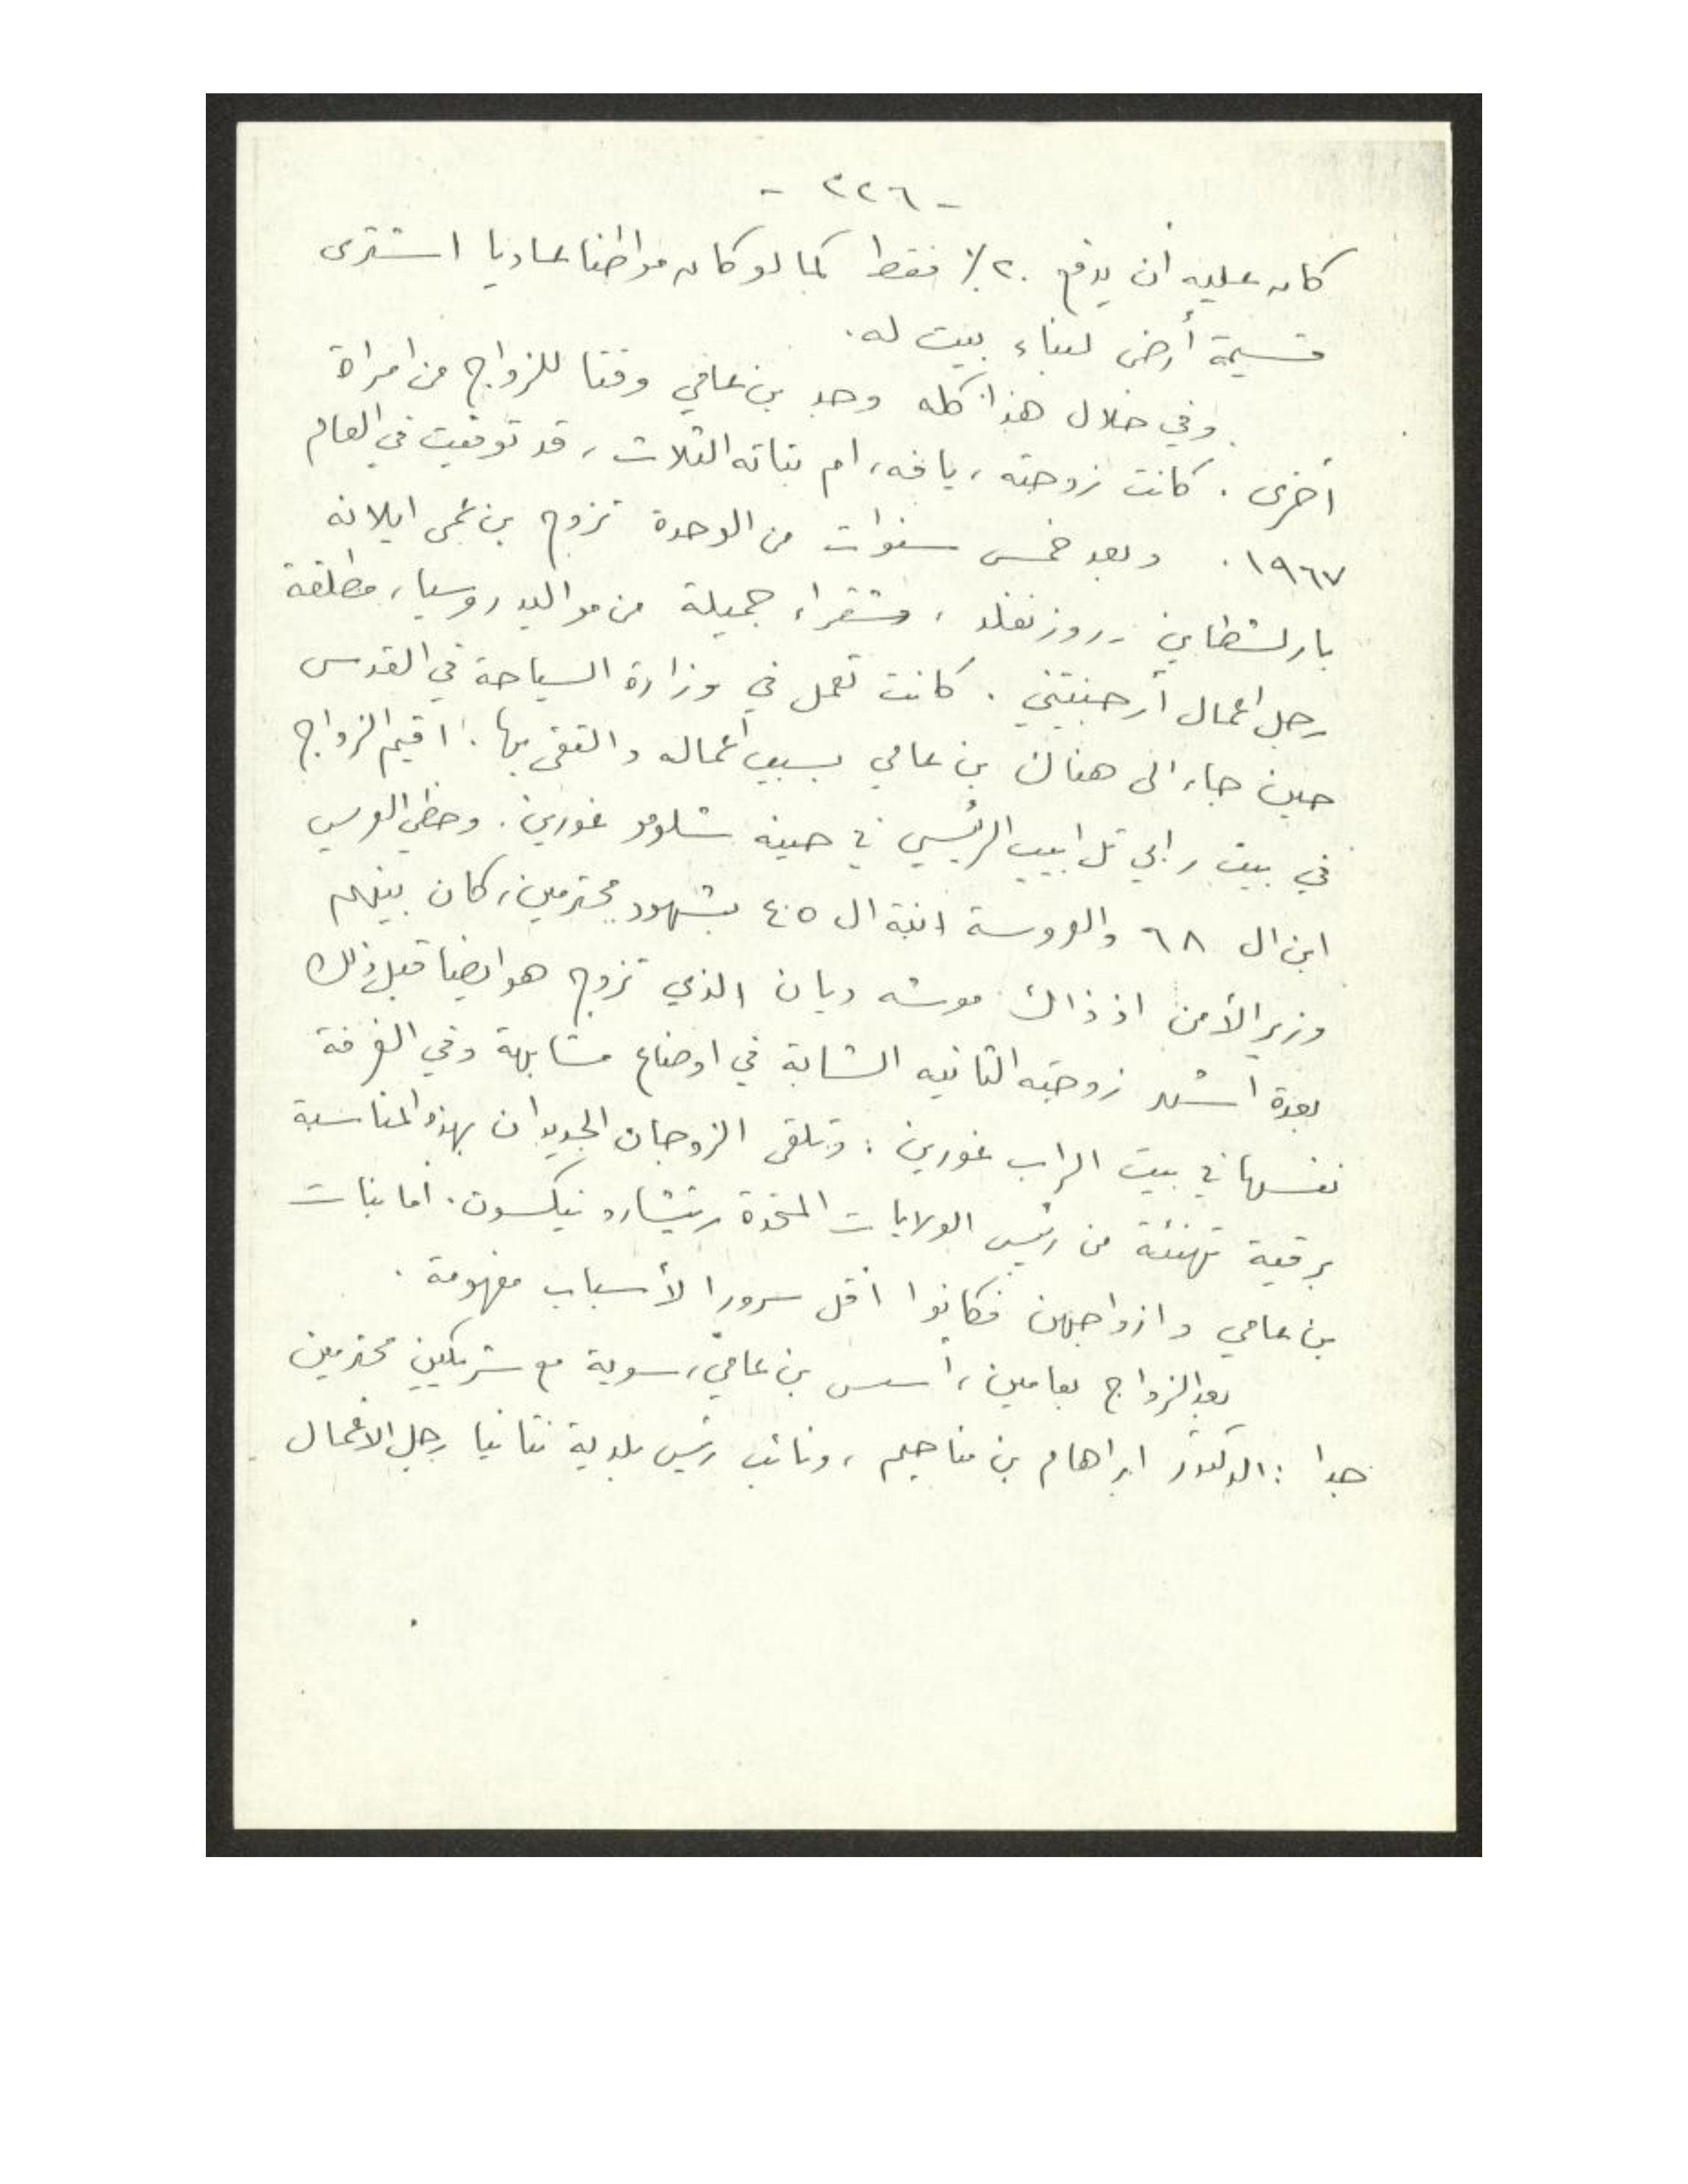 - ٢٢٦ -
كان عليه أن يدفع ٢٠٪ فقط كما لو كان مواطنا عاديا استترى
قسيمة أرض لبناء بيت له.
وفي خلال هذا كله وجد بن عامي وقتا للزواج من امراة
أخرى. كانت زوجته، يافه، ام بناته الثلاث، قد توفيت في العام
١٩٦٧. وبعد خمس سنوات من الوحدة تزوج بن عمي ايلانه
بارلشطاين - روزنفلد، شقراء جميلة من مواليد روسيا، مطلقة
رجل اعمال أرجنتيني. كانت تعمل في وزارة السياحة في القدس
حين جاء الى هناك بن عامي بسبب أعماله والتقى بها. اقيم الزواج
في بيت رابي تل ابيب الرئيسي في حينه شلومو غورين. وحظي العريس
ابن ال ٦٨ والعروسة ابنة ال ٤٠٥ بشهود محترمين، كان بينهم
وزير الأمن اذ ذاك موشه ديان الذي تزوج هو ايضا قبل ذلك
بعدة اشهر زوجته الثانيه الشابة في اوضاع مشابهة وفي الغرفة
نفسها في بيت الراب غورين: وتلقى الزوجان الجديدان بهذه المناسبة
برقية تهنئة من رئيس الولايات المتحدة ريتشارد نيكسون. أما بنات
بن عامي وازواجهن فكانوا أقل سرورا لأسباب مفهومة.
بعد الزواج بعامين، أسس بن عامي، سوية مع شريكين محترمين
جدا: الدكتور ابراهام بن مناحيم، ونائب رئيس بلدية نتانيا رجل الاعمال